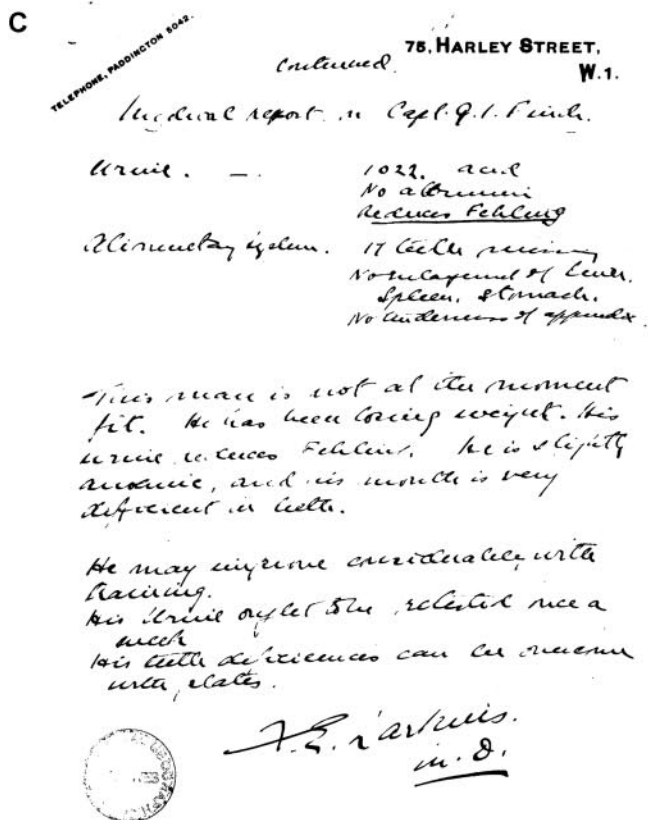 C
TELEPHONE, PADDINGTON 5042.
75, HARLEY STREET,
W.1.
continued.
Medical report on Capt. G. I. Finch.
Urine. — 1022. acid
No albumin
Reduces Fehling
Alimentary system. 17 teeth missing
No enlargement of liver,
Spleen, stomach.
No tenderness of appendix
This man is not at the moment
fit. He has been losing weight. His
urine reduces Fehling. He is slightly
anaemic, and his mouth is very
deficient in teeth.
He may improve considerably with
training.
His urine ought to be retested once a
week
His teeth deficiences can be overcome
with plates.
F. E. Larkins.
M.D.